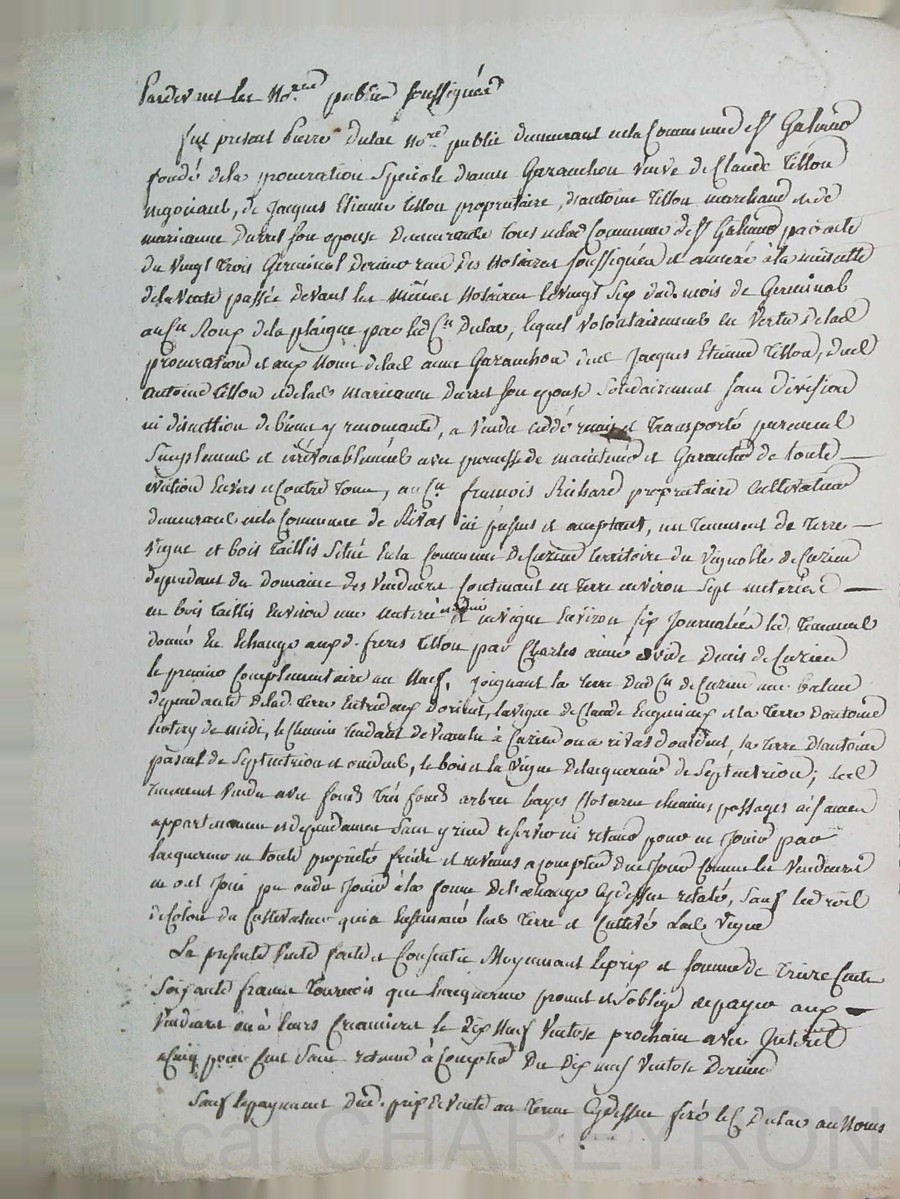 Pardevant les Nores publics soussignés
fut present Pierre Dulac Nore public demeurant en la Commune de St Galmier
fondé de la procuration Speciale danne Garanchon veuve de Claude Tillon
negotiant, de Jacques Etienne Tillon propriétaire, d'antoine Tillon marchand et de
marieanne Durret son epouse demeurants tous en lad. Commune de St Galmier par acte
du vingt trois Germinal dernier recue des Notaires soussignés et annexé à la minutte
de la vente passée devant les mêmes Notaires le vingt six dud. mois de Germinal
au Cn Roux de la plaigne par led. Cn Dulac, lequel volontairement en vertu de lad.
procuration et aux Noms de lad. anne Garanchon dud. Jacques Etienne Tillon, dud.
antoine Tillon et de lad. Marieanne Durret son epouse solidairement sans division
ni discution de biens y renonçants, a vendu cédé remis et transporté purement
simplement et irrévocablement avec promesse de maintenir et Garantir de toute
eviction envers et contre tous, au Cn francois Richard propriétaire cultivateur
demeurant en la Commune de Rivas ici présent et acceptant, un tenement de terre
vigne et bois taillis situé en la Commune de Cuzieu territoire du vignoble de Cuzieu
dependant du domaine des vendeurs contenant en terre environ sept meterées
en bois taillis environ une meterée et en vigne environ six journalées led. tenement
donné en Echange aux d. freres Tillon par Charles aimé Denis de Cuzieu
le premier complementaire an Neuf, joignant la terre dud. Cn de Cuzieu une balme
dependante de lad. terre entredeux d'orient, la vigne de Claude et la terre d'antoine
de midi, le chemin tendant de Veauche à Cuzieu ou a rivas d'occident, la terre d'antoine
pascal de septentrion et occident, le bois et la vigne de lacquereur de septentrion; led.
tenement vendu avec fonds très fonds arbres hayes clotures chemins passages aisances
appartenances et dependances sans y rien reserver ni retenir pour en jouir par
lacquereur en toute propriété fruits et revenus a compter de ce jour comme les vendeurs
en ont joui pu ou du jouir à la forme de l'echange cydessus relaté, sauf led. droit
de colon du cultivateur qui a ensemencé lad. terre et cultivé lad. vigne
La presente vente faite et consentie moyennant le prix et somme de treize cents
soixante francs tournois que lacquereur promet et s'oblige de payer aux
vendeurs ou à leurs creanciers le dix neuf ventose prochain avec interêt
a cinq pour cent sans retenue à compter du dix neuf ventose dernier
Sauf le payement dud. prix de vente au terme cydessus fixé le C. Dulac aux Noms
Pascal CHAREYRON